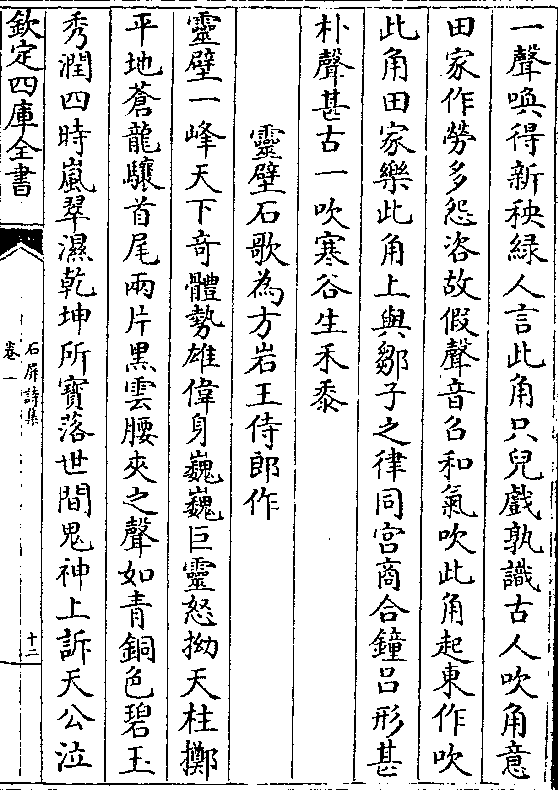 一聲喚得新秧緑人言此角只兒戲孰識古人吹角意
田家作勞多怨咨故假聲音召和氣吹此角起東作吹
此角田家樂此角上與鄒子之律同宮商合鐘呂形甚
朴聲甚古一吹寒谷生禾黍
靈壁石歌為方岩王侍郎作
靈壁一峰天下奇體勢雄偉身巍巍巨靈怒拗天柱擲
平地蒼龍驤首尾兩片黑雲腰夾之聲如青銅色碧玉
秀潤四時嵐翠濕乾坤所寶落世間鬼神上訴天公泣
欽定四庫全書
石屏詩集
卷一
十二